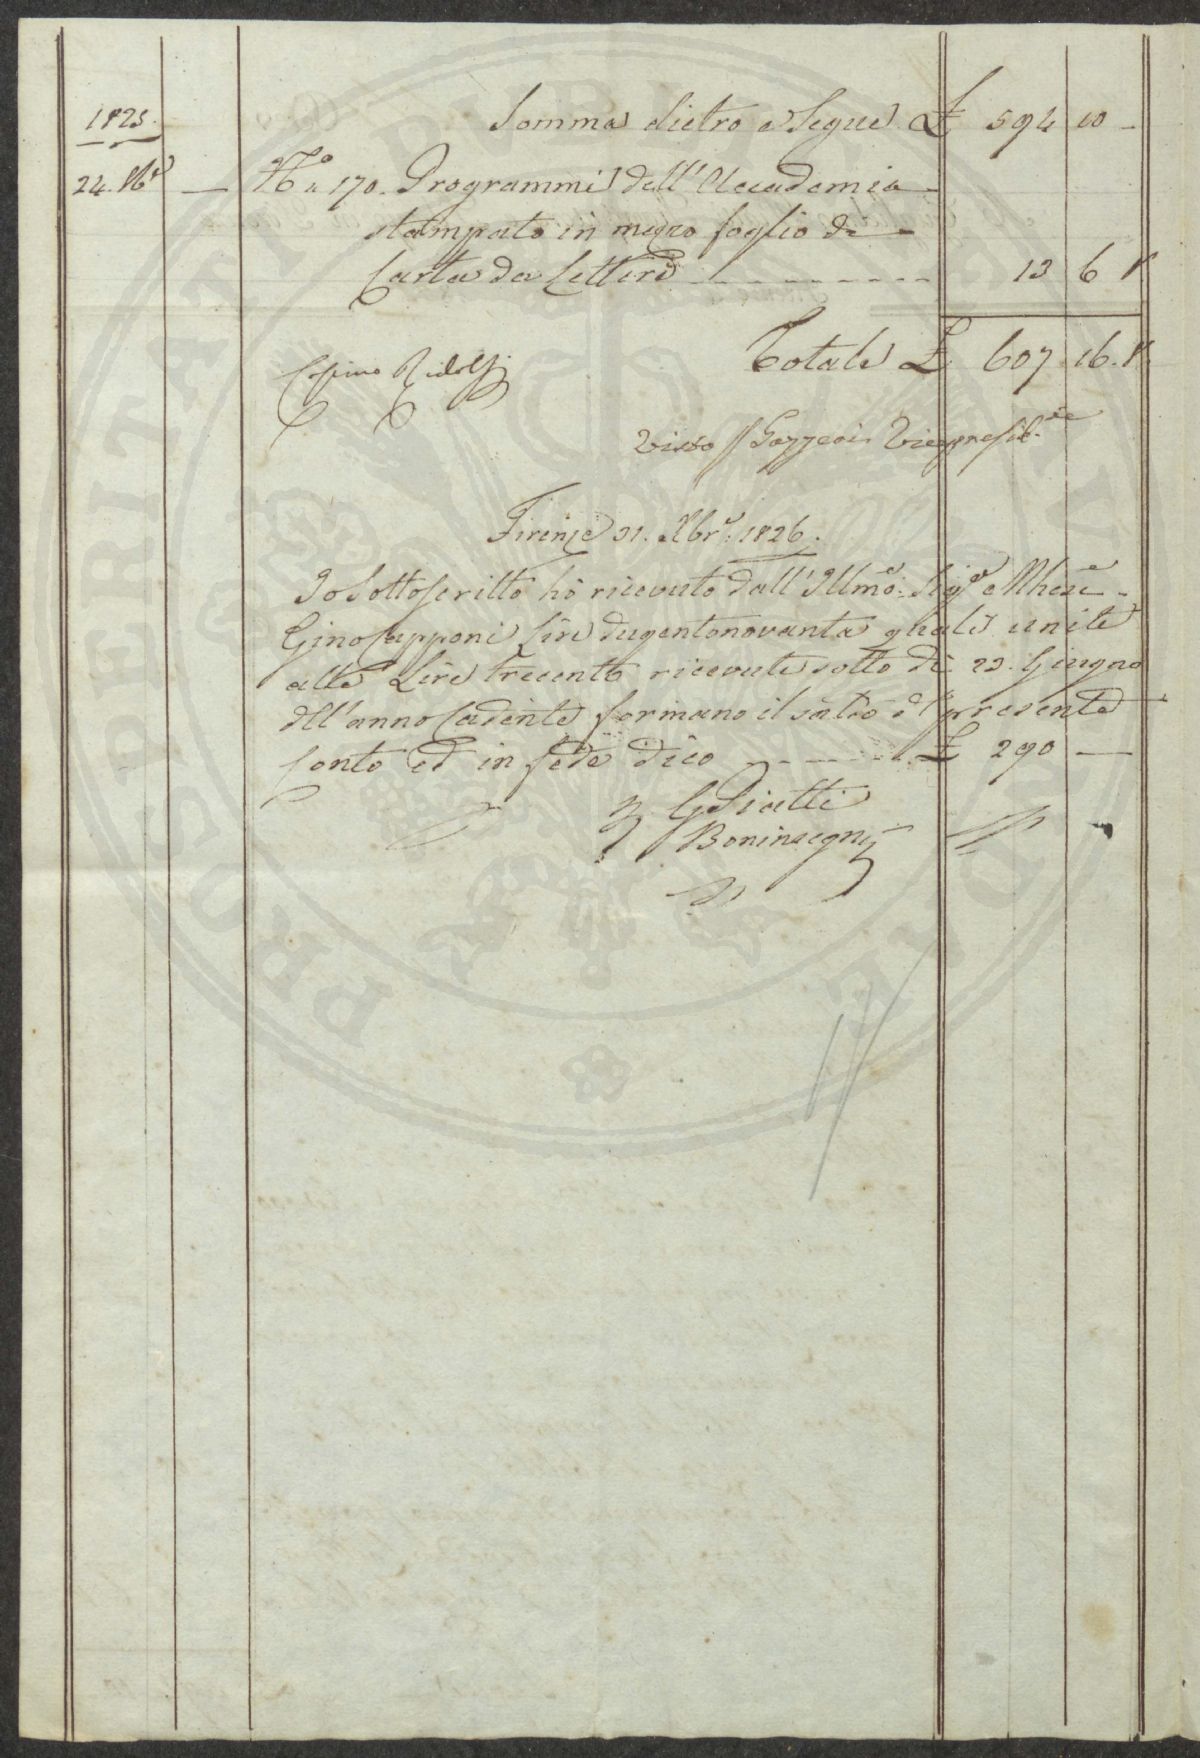 1825.
Somma dietro e Segue £ 594 10 -
24. Xbre — No. 170. Programmi dell'Accademia
stampato in mezzo foglio di
Carta da Lettere 13 6 8
Totale £. 607. 16. 8.
Cosimo Ridolfi
Visto Vicepresid.te
Firenze 31. Xbre: 1826.
Io Sottoscritto hò ricevuto dall'Illmo: Sigre Mhese
Gino Capponi Lire dugentonovanta quale unite
alle Lire trecento ricevute sotto dì 23. Giugno
dell'anno Cadente formano il saldo del presente
Conto ed in fede dico £ 290 —
G Piatti
Boninsegni
PRUDE ITATI